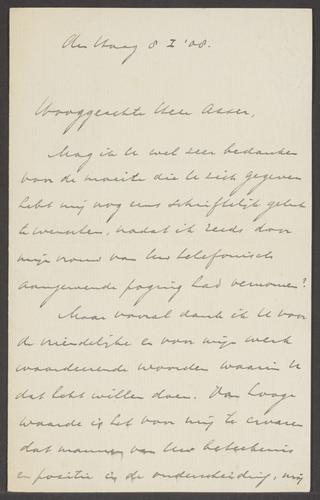 den Haag 8 I '08.
Hooggeachte Heer Asser,
Mag ik U wel zeer bedanken
voor de moeite die U zich gegeven
hebt mij nog eens schriftelijk geluk
te wenschen, nadat ik reeds door
mijn vrouw van Uw telefonisch
aangewende poging had vernomen?
Maar vooral dank ik U voor
de vriendelijke en voor mijn werk
waardeerende woorden waarin U
dat hebt willen doen. Van hooge
waarde is het voor mij te ervaren
dat mannen van Uw beteekenis
en positie in de onderscheiding, mij